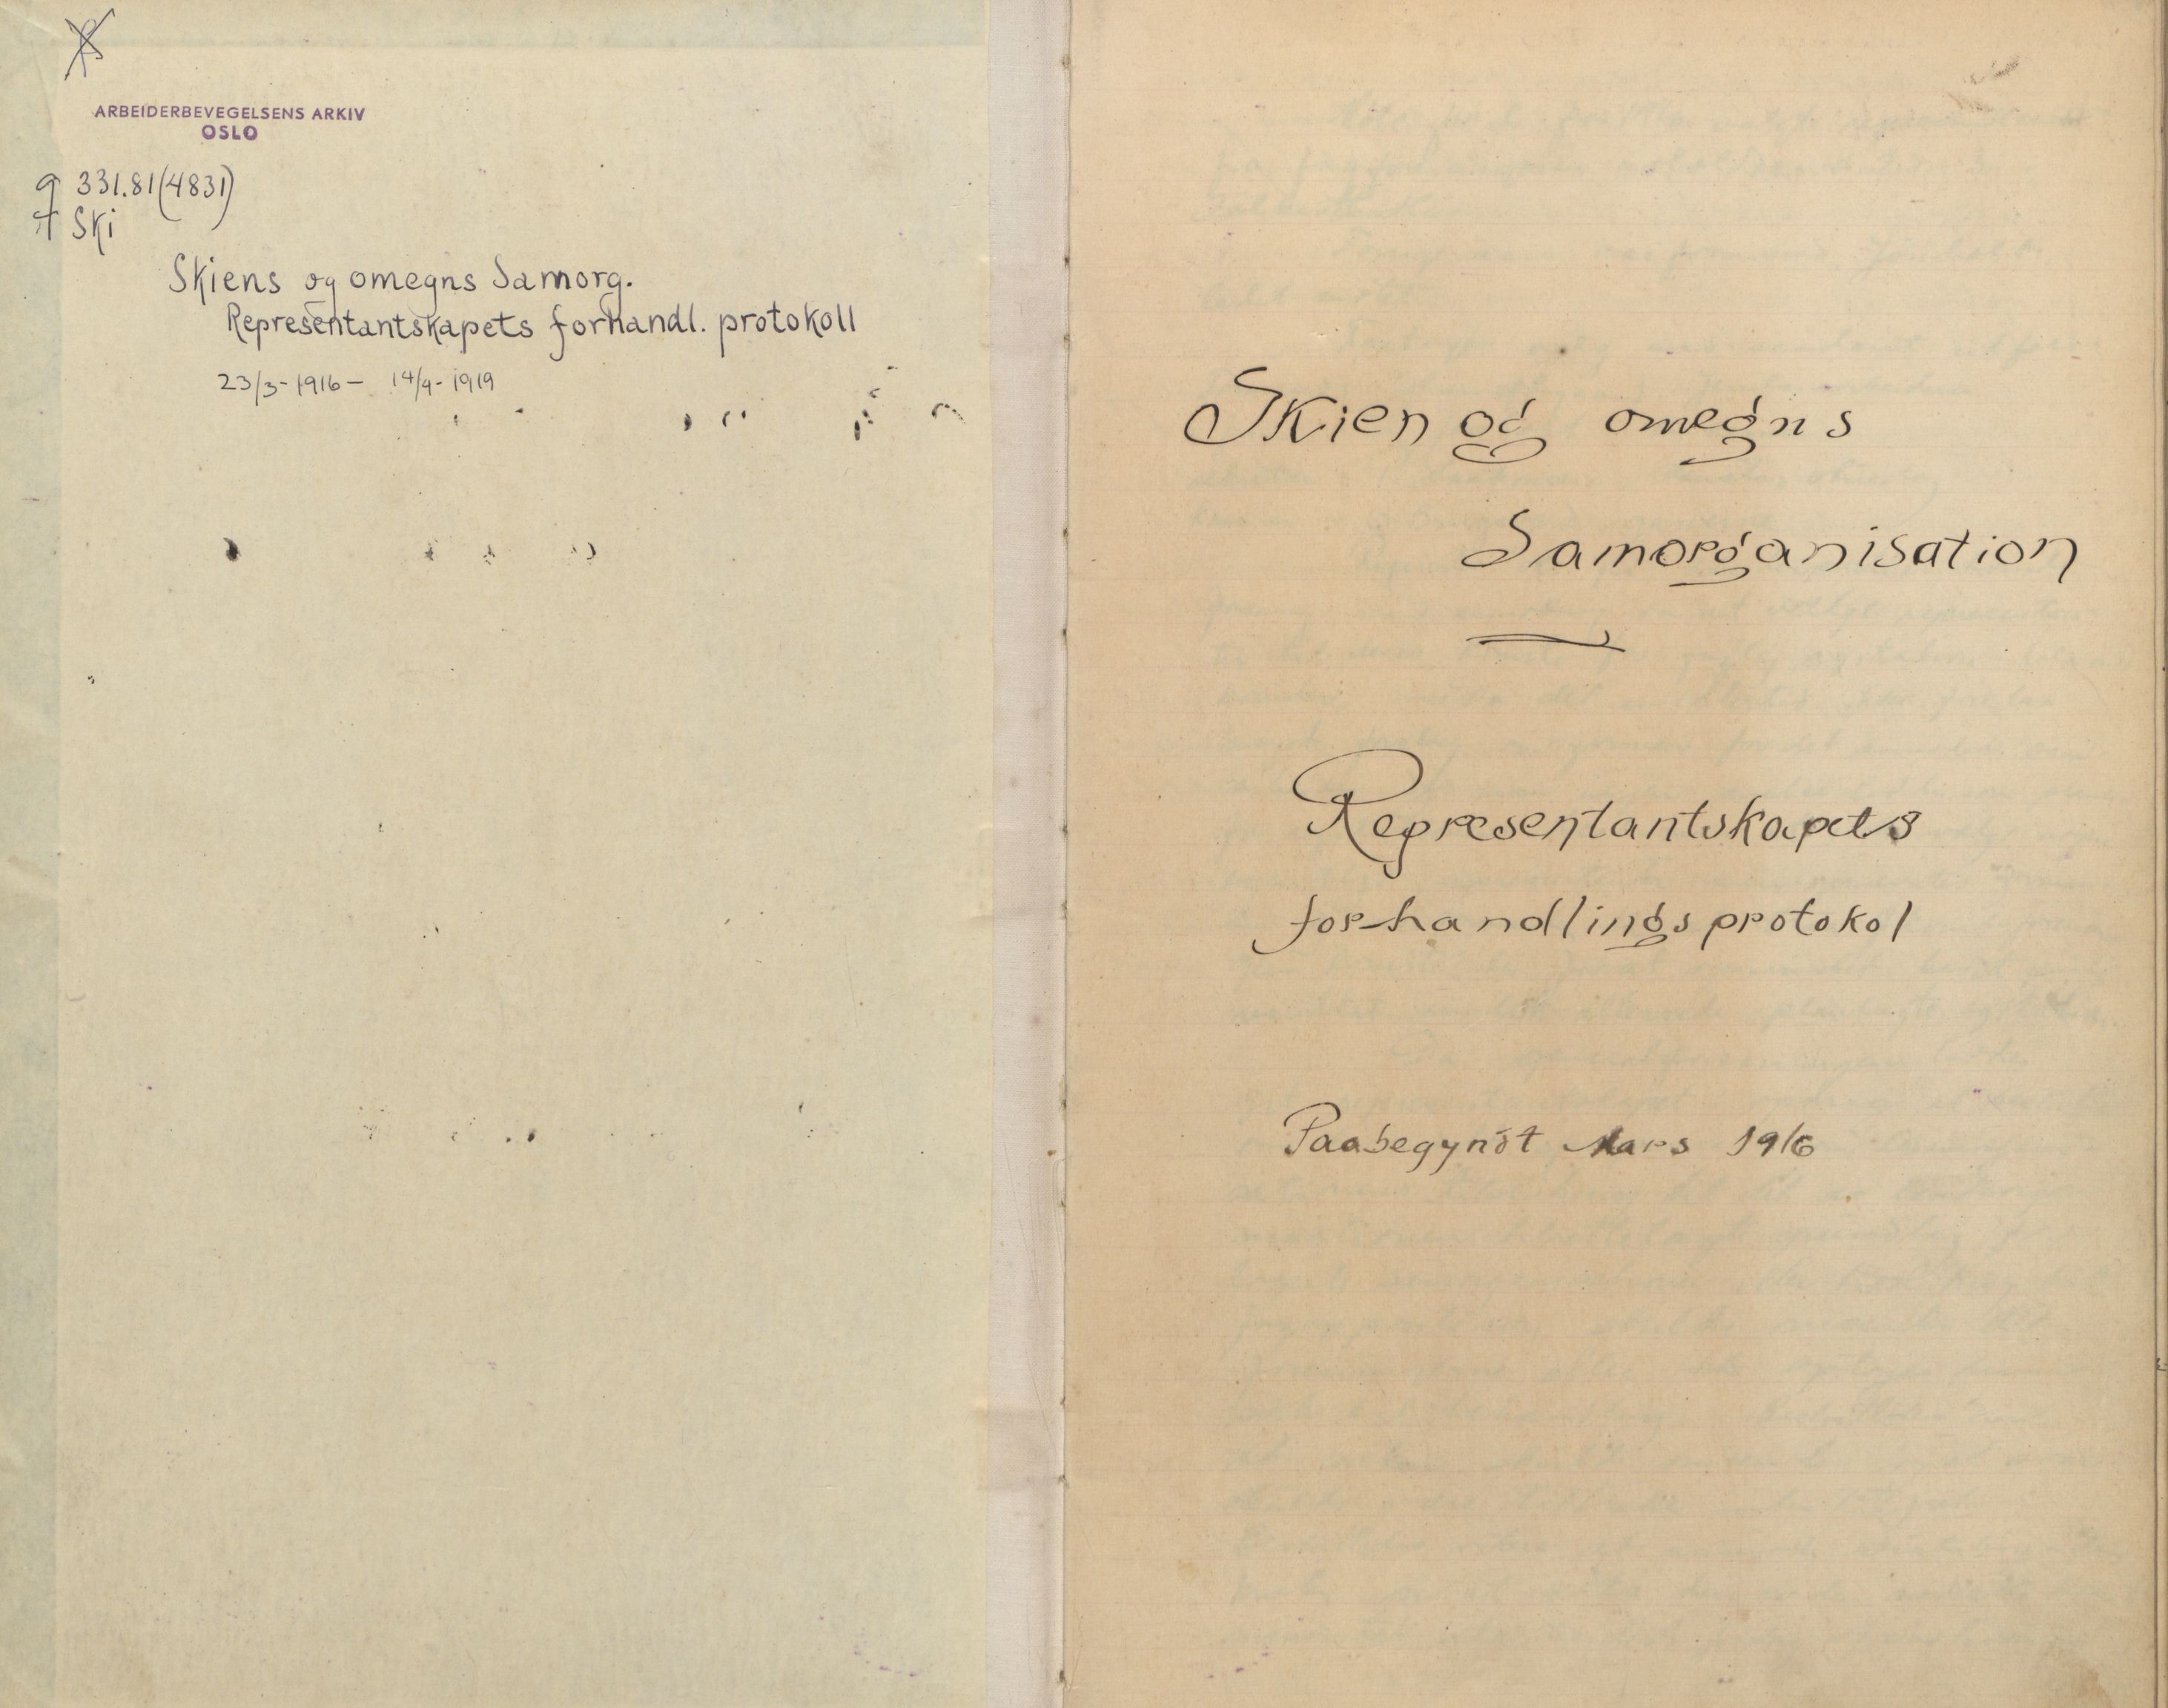 ARBEIDERBEVEGELSENS ARKIV
OSLO
q 331.81(4831)
Ski
Skiens og omegns Samorg.
Representantskapets forhandl. protokoll
23/3-1916 - 14/9-1919
Skien og omegns
Samorganisation
Representantskapets
forhandlingsprotokol
Paabegyndt Mars 1916